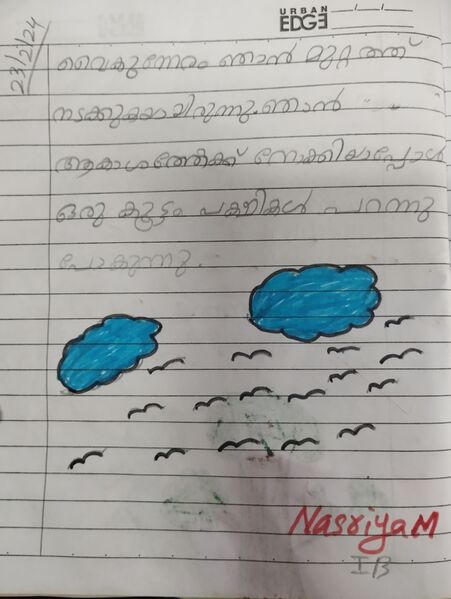 URBAN
EDGE
23/2/24
വൈകുന്നേരം ഞാൻ മുറ്റത്ത്
നടക്കുകയായിരുന്നു. ഞാൻ
ആകാശത്തേക്ക് നോക്കിയപ്പോൾ
ഒരു കൂട്ടം പക്ഷികൾ പറന്നു
പോകുന്നു.
Nasriya M
I B